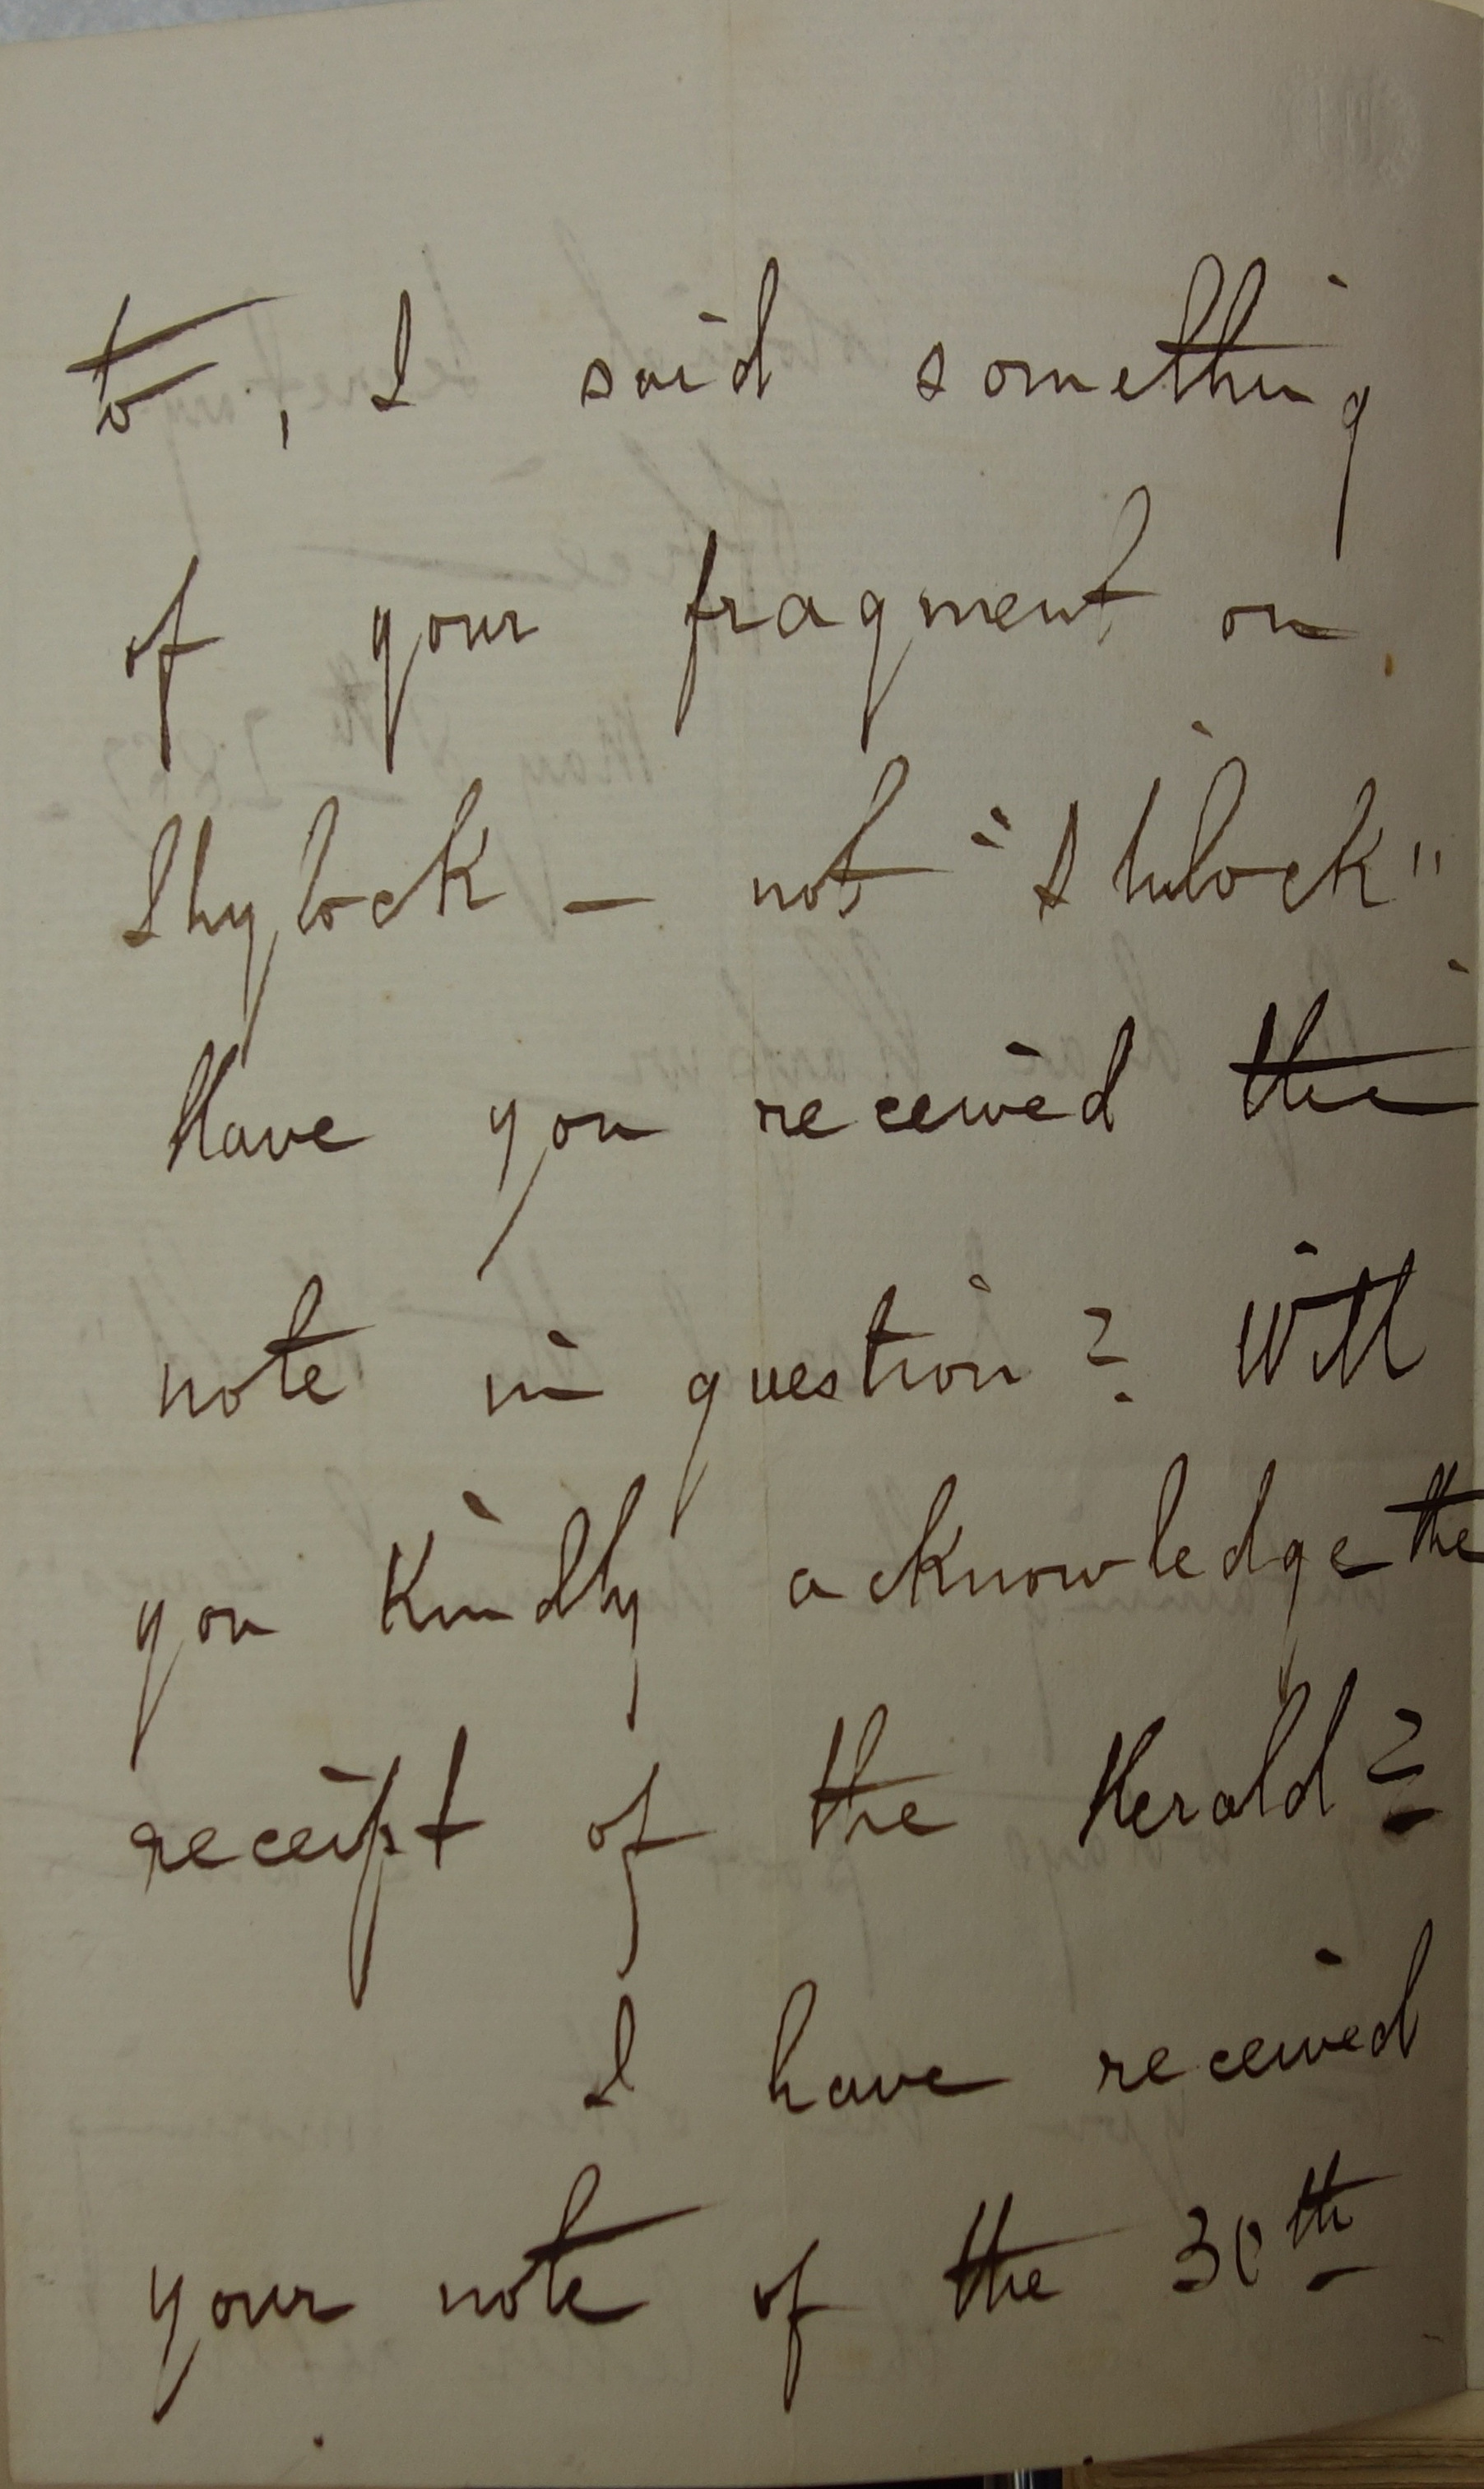 to, I said something
of your fragment on
Shylock – not "Shilock"
Have you received the
note in question? Will
you kindly acknowledge the
receipt of the Herald?
I have received
your note of the 30th